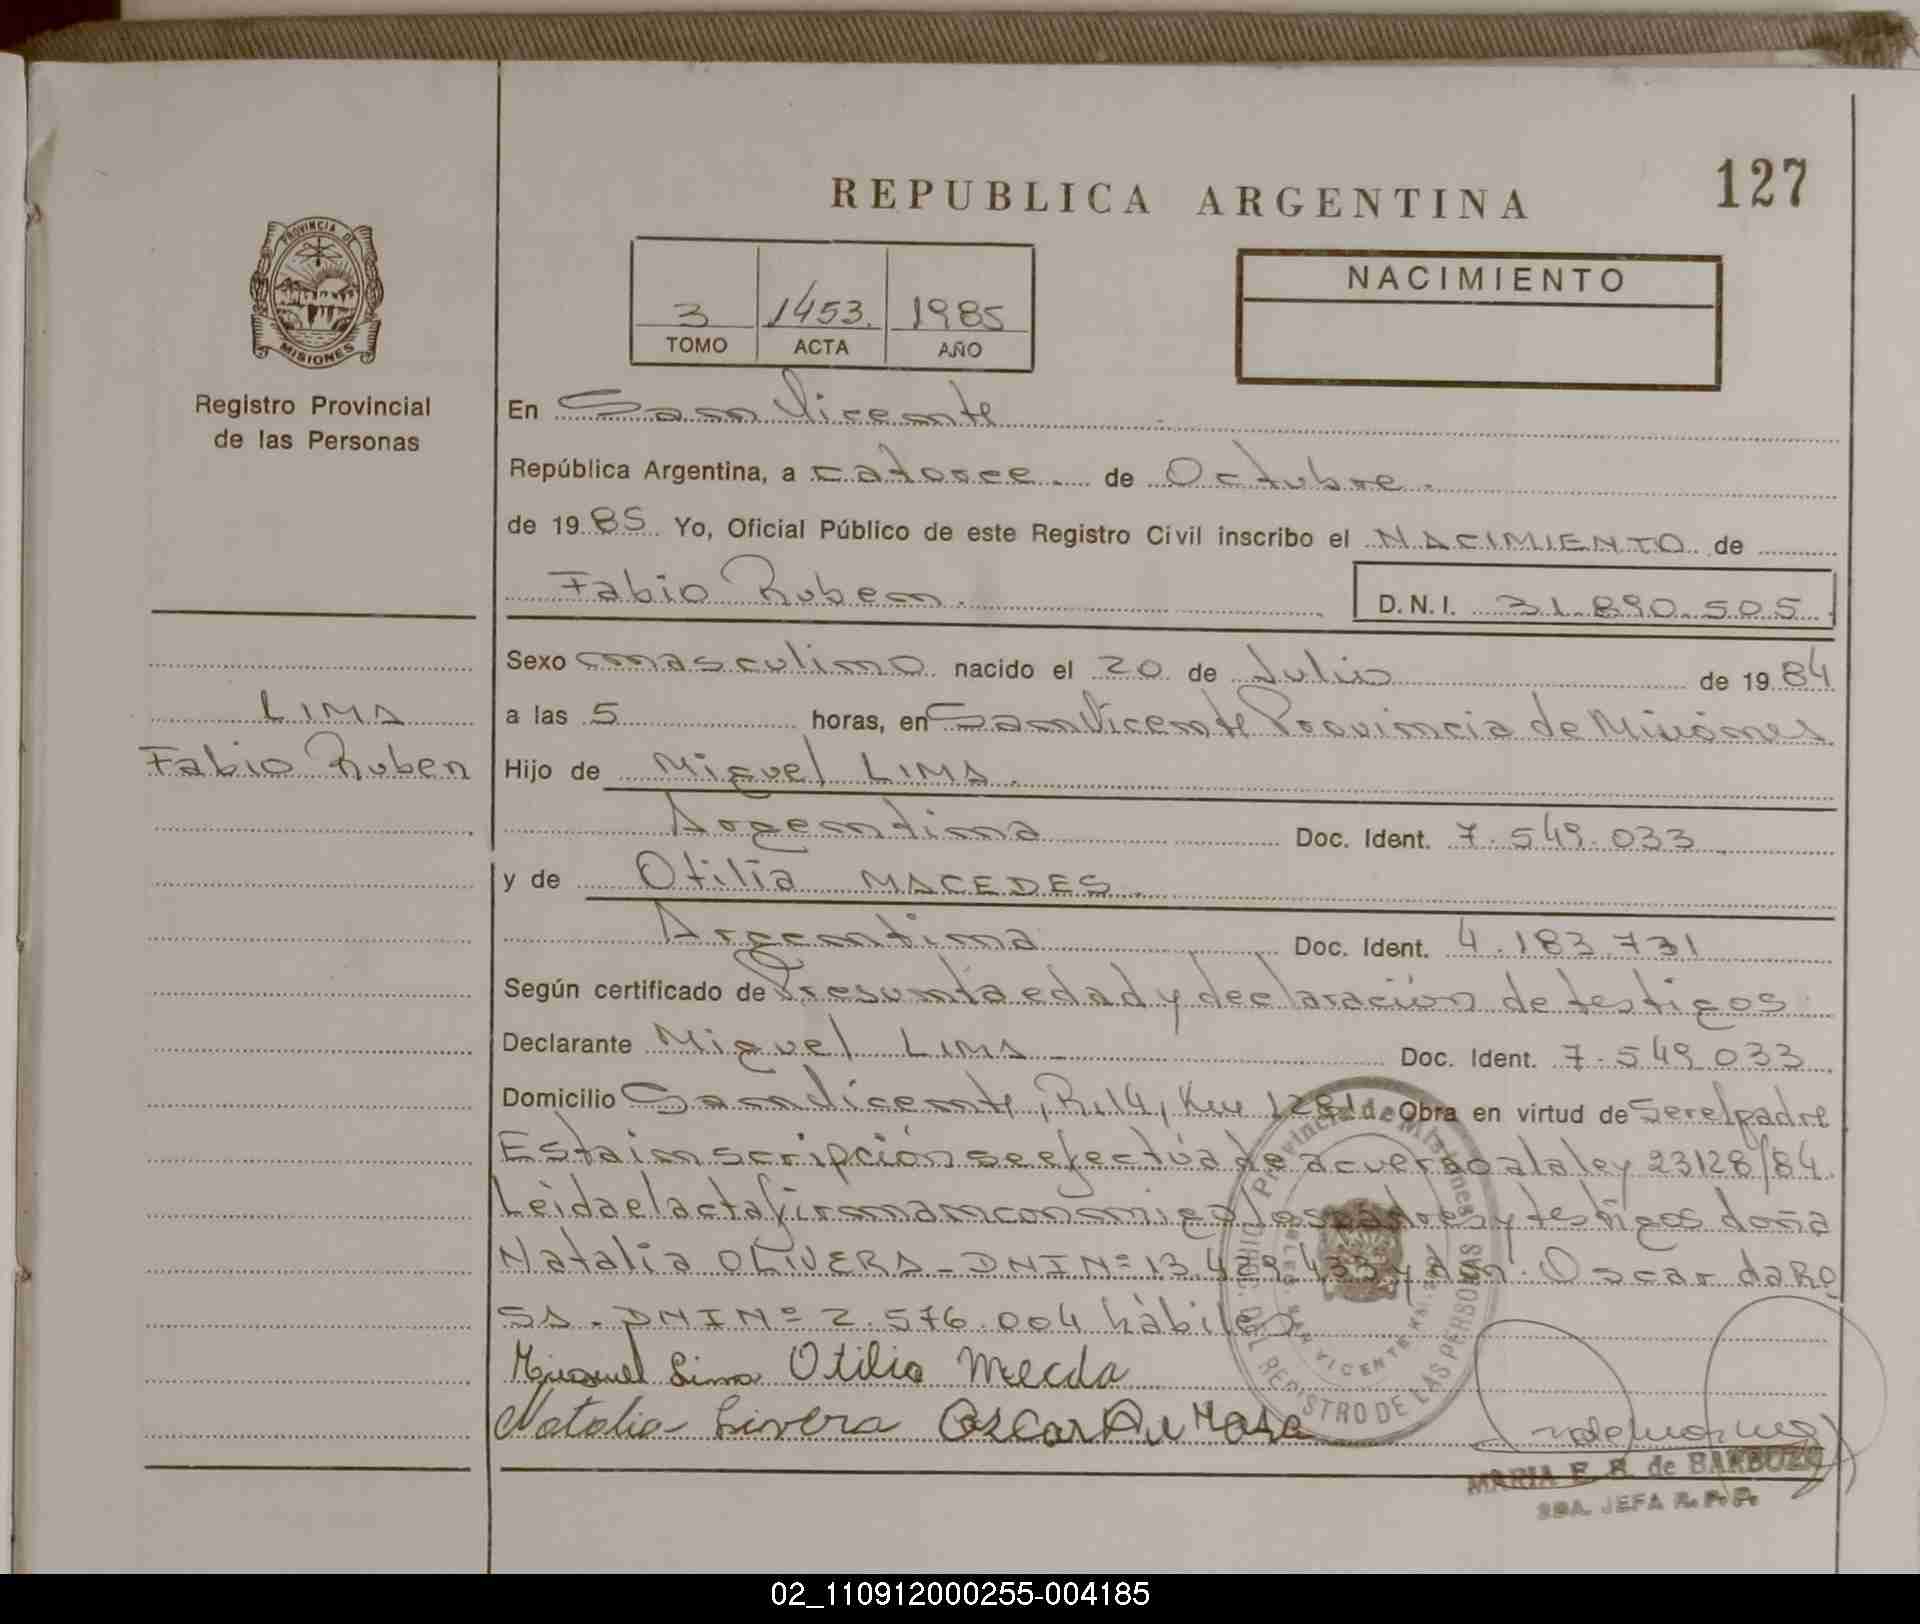 127
REPUBLICA ARGENTINA
PROVINCIA DE
MISIONES
Registro Provincial
de las Personas
3 1453. 1985
TOMO ACTA AÑO
NACIMIENTO
En San Vicente
República Argentina, a catorce de Octubre.
de 19 85 Yo, Oficial Público de este Registro Civil inscribo el NACIMIENTO de
Fabio Ruben. D.N.I. 31.890.505.
Sexo masculino nacido el 20 de Julio de 19 84
LIMA
Fabio Ruben
a las 5 horas, en San Vicente Provincia de Misiones
Hijo de Miguel LIMA.
Argentina Doc. Ident. 7.549.033
y de Otilia MACEDES.
Argentina Doc. Ident. 4.183.731
Según certificado de Presunta edad y declaración de testigos
Declarante Miguel LIMA Doc. Ident. 7.549.033
Domicilio San Vicente, R.14, Km 1281 de Obra en virtud de Ser el padre
Esta inscripción se efectúa de acuerdo a la ley 23128/84.
Leida el acta firman conmigo los padres y testigos doña
Natalia OLIVERA - DNI Nº 13.429.433 y don Oscar da Ro
SA. DNI Nº 2.576.004 hábiles
Miguel Lima Otilia Mecda
Natalia Livera Oscar Da Rosa
MARIA E. R. de BARBOZA
SRA. JEFA R. P. P.
02_110912000255-004185